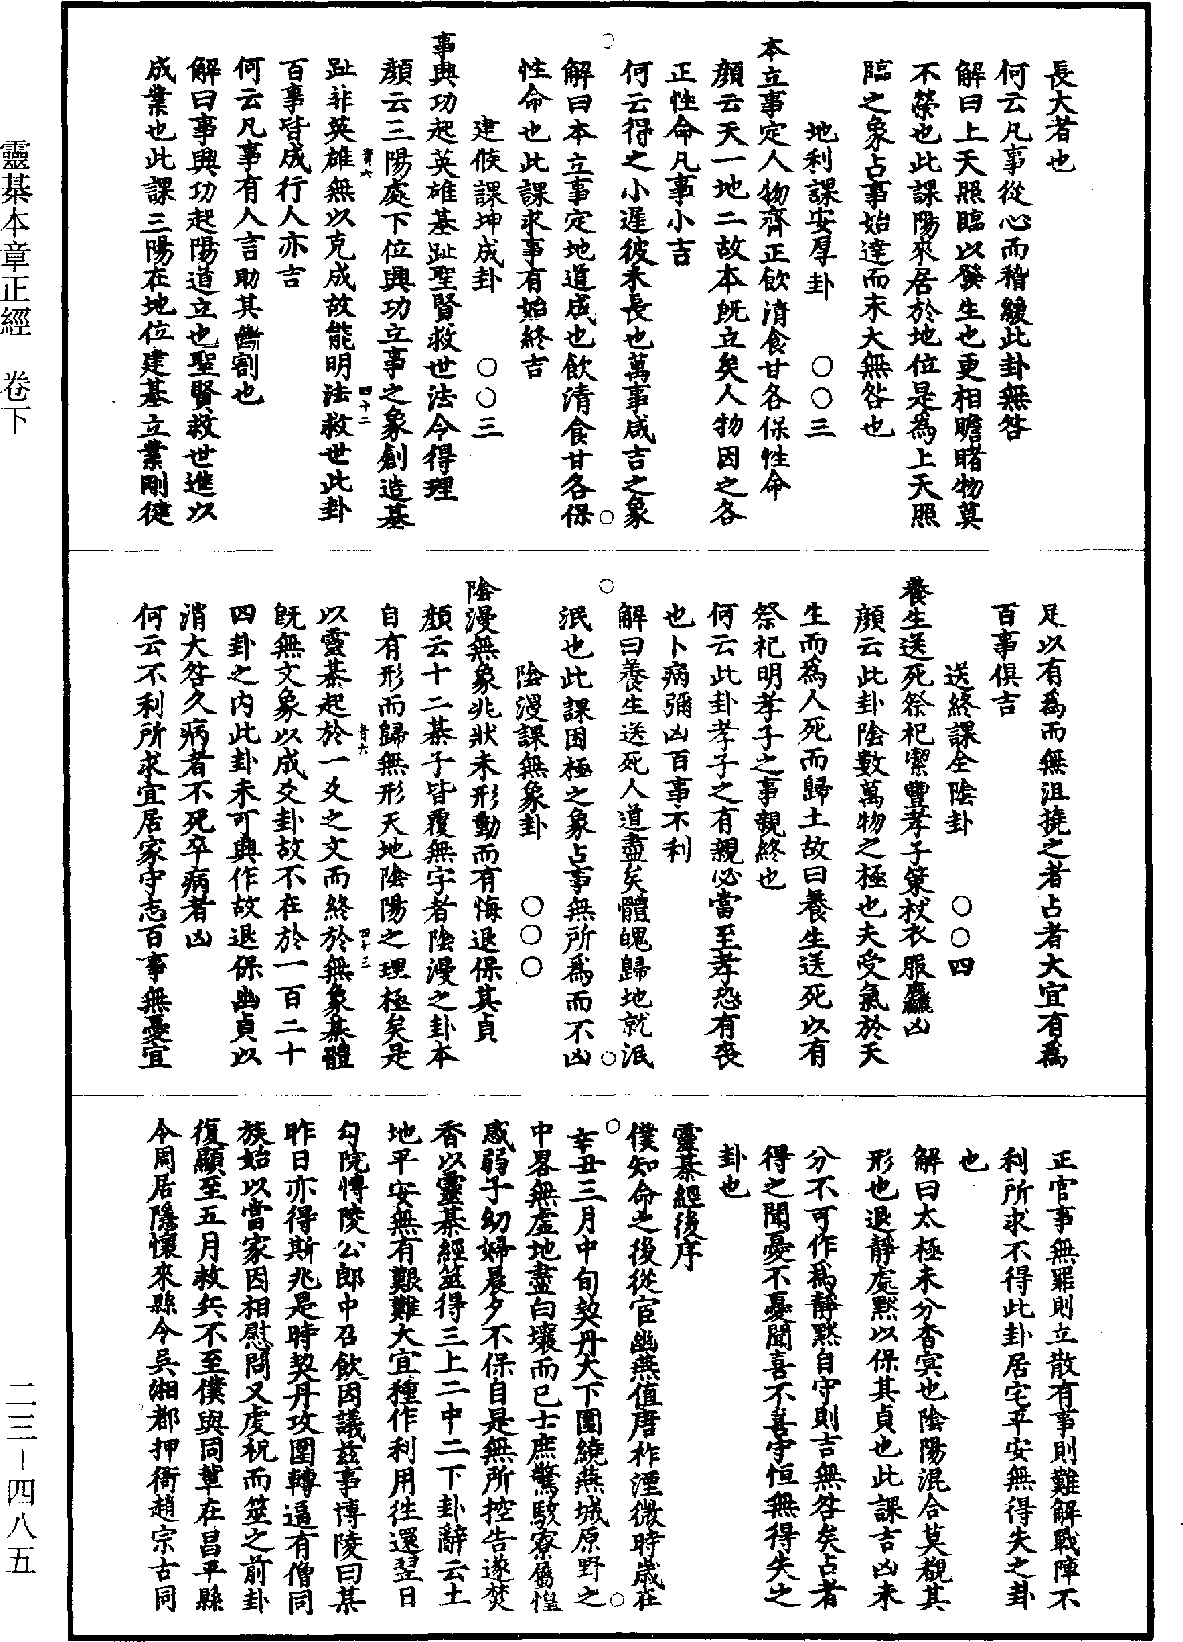 長大者也
何云凡事從心而稽緩此卦無咎
解曰上天照臨以發生也更相瞻睹物莫
不榮也此課陽來居於地位是為上天照
臨之象占事始達而末大無咎也
地利課安厚卦　○○三
本立事定人物齊正飲清食甘各保性命
顔云天一地二故本既立矣人物因之各
正性命凡事小吉
何云得之小遲彼未長也萬事咸吉之象
解曰本立事定地道成也飲清食甘各保
性命也此課求事有始終吉
建候課坤成卦　○○三
事興功起英雄基趾聖賢救世法令得理
顔云三陽處下位興功立事之象創造基
趾非英雄無以克成故能明法救世此卦
百事皆成行人亦吉
何云凡事有人言助其斷割也
解曰事興功起陽道立也聖賢救世進以
成業也此課三陽在地位建基立業剛健
足以有爲而無沮撓之者占者大宜有爲
百事俱吉
送終課全陰卦　○○四
養生送死祭祀潔豐孝子策杖衣服麤凶
顔云此卦陰數萬物之極也夫受氣於天
生而爲人死而歸土故曰養生送死以有
祭祀明孝子之事親終也
何云此卦孝子之有親必當至孝恐有喪
也卜病彌凶百事不利
解曰養生送死人道盡矣體魄歸地就泯
泯也此課困極之象占事無所爲而不凶
陰漫課無象卦　○○○
陰漫無象兆狀未形動而有悔退保其貞
顔云十二棊子皆覆無字者陰漫之卦本
自有形而歸無形天地陰陽之理極矣是
以靈棊起於一爻之文而終於無象棊體
既無文象以成爻卦故不在於一百二十
四卦之内此卦未可興作故退保幽貞以
消大咎久病者不死卒病者凶
何云不利所求宜居家守志百事無憂宜
正官事無罪則立散有事則難解戰陣不
利所求不得此卦居宅平安無得失之卦
也
解曰太極未分杳冥也陰陽混合莫覩其
形也退靜處默以保其貞也此課吉凶未
分不可作爲靜默自守則吉無咎矣占者
得之聞憂不憂聞喜不喜守恒無得失之
卦也
靈棊經後序
僕知命之後從官幽燕值唐祚湮微時歲在
辛丑三月中旬契丹大下圍繞燕城原野之
中畧無虚地盡白壤而已士庶驚駭寮屬惶
惑弱子幼婦晨夕不保自是無所控告遂焚
香以靈棊經筮得三上二中二下卦辭云土
地平安無有艱難大宜種作利用往還翌日
勾院愽陵公郎中召飲因議兹事博陵曰某
昨日亦得斯兆是時契丹攻圍轉逼有僧同
族始以當家因相慰問又虔祝而筮之前卦
復顯至五月救兵不至僕與同輩在昌平縣
今周居隱懷來縣令吳湘都押衙趙宗古同
靈棊本章正經　卷下
二三－四八五